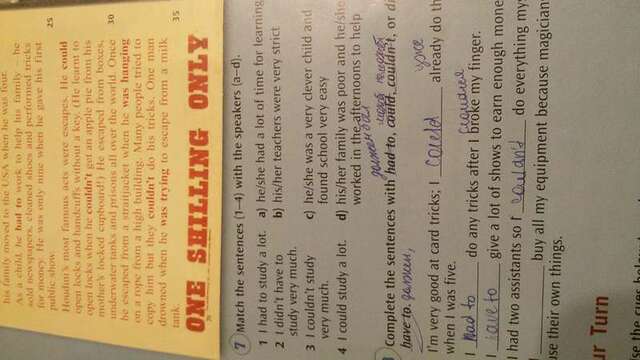 his family moved to the USA when he was four.
As a child, he had to work to help his family – he
sold newspapers, cleaned shoes and performed tricks
for money. He was only nine when he gave his first
public show.
25
Houdini's most famous acts were escapes. He could
open locks and handcuffs without a key. (He learnt to
open locks when he couldn't get an apple pie from his
mother's locked cupboard!) He escaped from boxes,
underwater tanks and prisons all over the world. Once
30
he escaped from a straitjacket when he was hanging
on a rope from a high building. Many people tried to
copy him but they couldn't do his tricks. One man
drowned when he was trying to escape from a milk
tank.
35
ONE SHILLING ONLY
7 Match the sentences (1–4) with the speakers (a–d).
1 I had to study a lot.
2 I didn't have to
study very much.
3 I couldn't study
very much.
4 I could study a lot.
a) he/she had a lot of time for learning
b) his/her teachers were very strict
c) he/she was a very clever child and
found school very easy
d) his/her family was poor and he/she
worked in the afternoons to help
должен был
Complete the sentences with had to, could, couldn't, or
have to. должен,
уже
I'm very good at card tricks; I could already do
when I was five.
I had to do any tricks after I broke my finger.
I have to give a lot of shows to earn enough
had two assistants so I couldn't do everything
buy all my equipment because magician
use their own things.
ur Turn